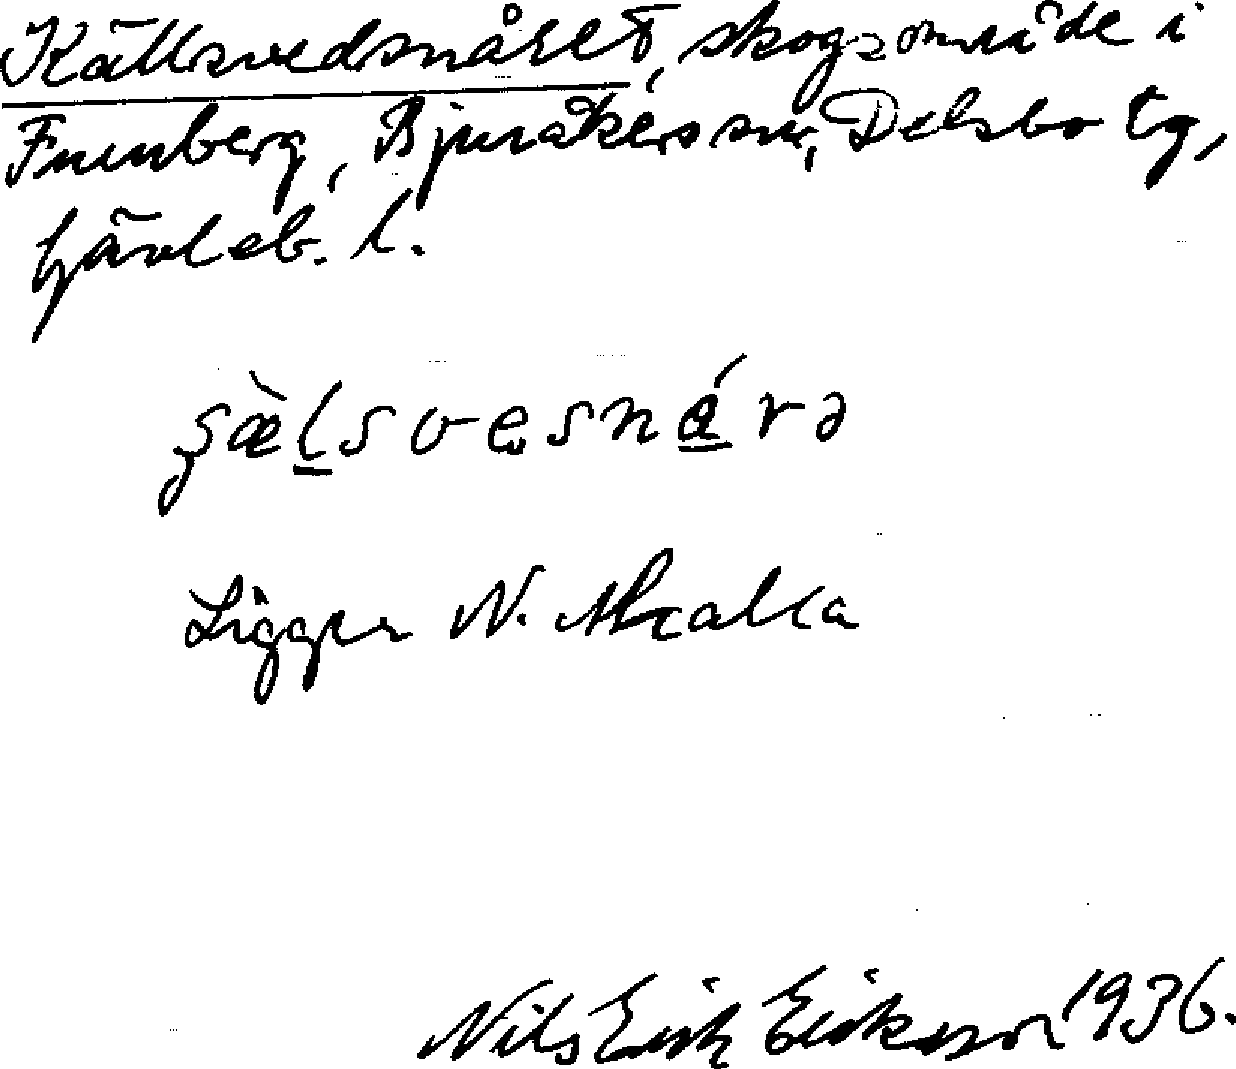 Källsvedsnåret, skogsområde i
Furuberg, Bjuråkers sn, Delsbo tg,
Gävleb. l.
Ligger N. Moralla
Nils Erik Eriksson 1936.